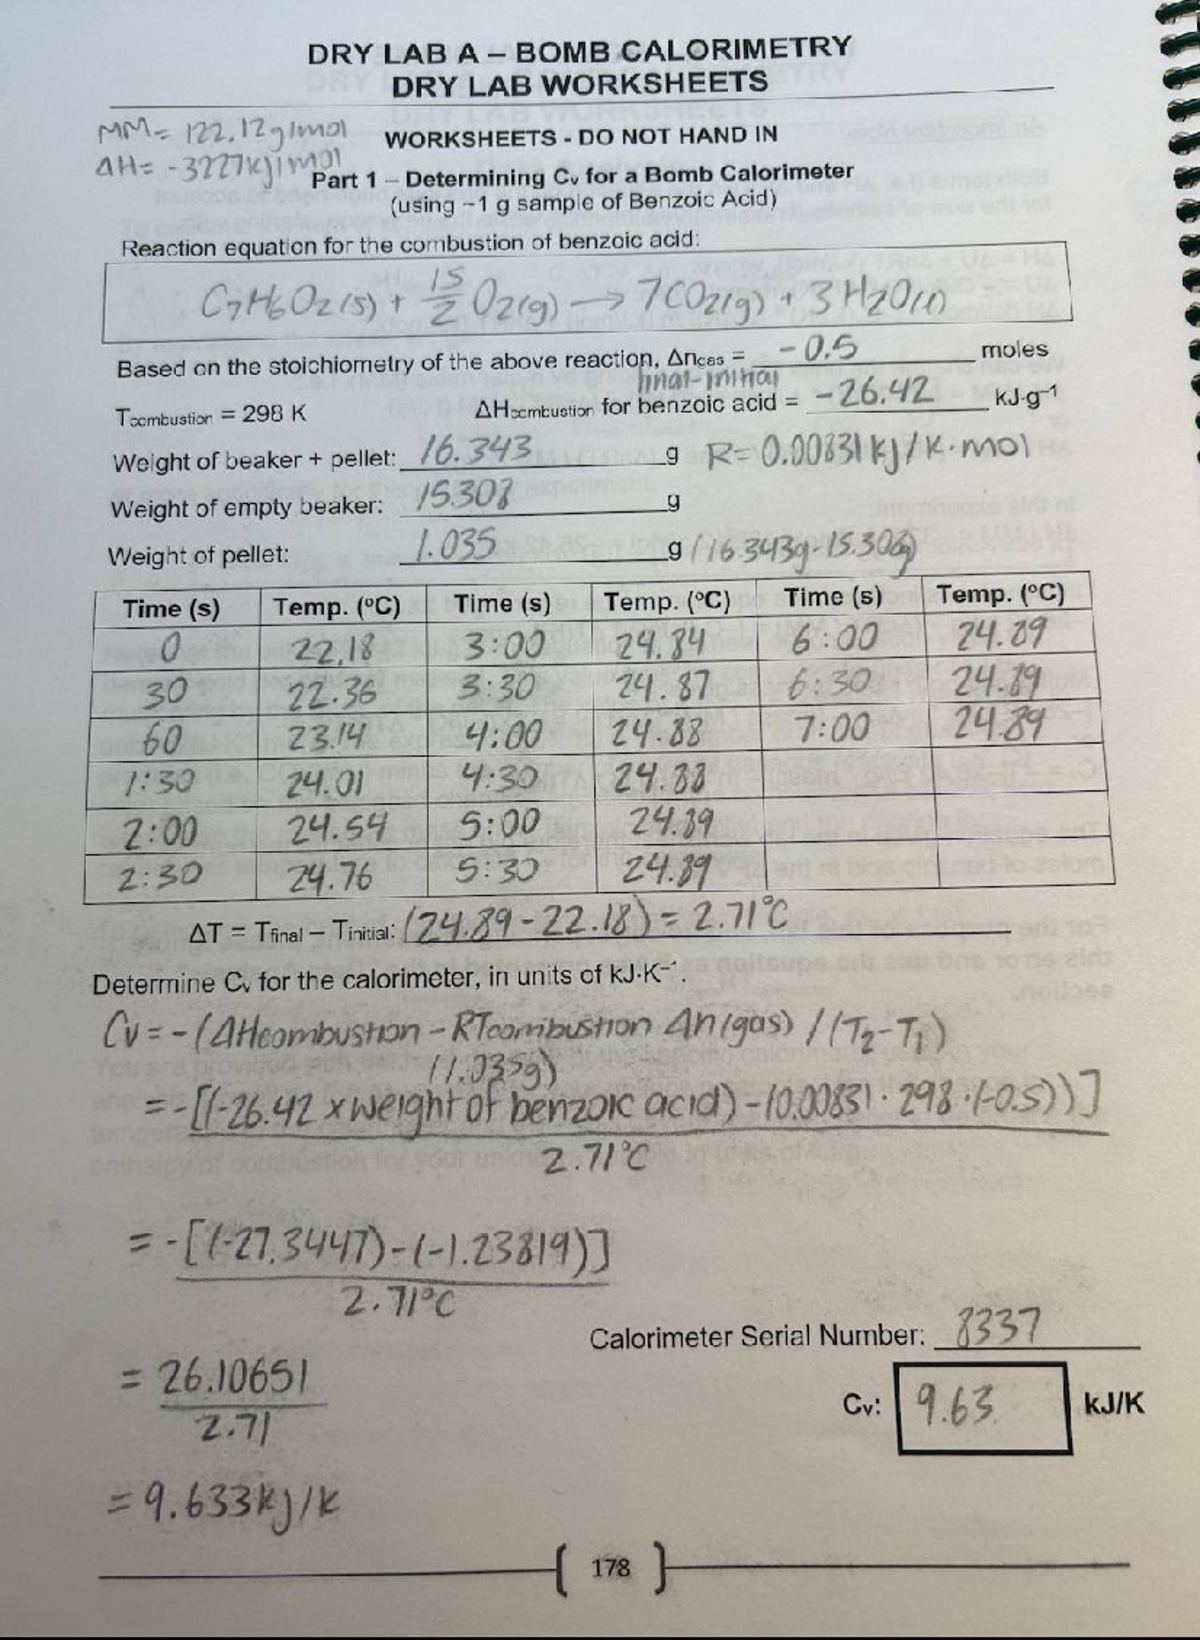 DRY LAB A – BOMB CALORIMETRY
DRY LAB WORKSHEETS
MM= 122.12g/mol
WORKSHEETS - DO NOT HAND IN
ΔH= -3227kj/mol
Part 1 – Determining Cv for a Bomb Calorimeter
(using ~1 g sample of Benzoic Acid)
Reaction equation for the combustion of benzoic acid:
C7H6O2(s) + 15/2 O2(g) → 7CO2(g) + 3H2O(l)
Based on the stoichiometry of the above reaction, Δngas = -0.5 moles
final-initial
Tcombustion = 298 K ΔHcombustion for benzoic acid = -26.42 kJ·g-1
Weight of beaker + pellet: 16.343 g R=0.00831kj/K·mol
Weight of empty beaker: 15.308 g
Weight of pellet: 1.035 g (16.343g-15.308g)
Time (s) Temp. (°C) Time (s) Temp. (°C) Time (s) Temp. (°C)
0 22.18 3:00 24.84 6:00 24.89
30 22.36 3:30 24.87 6:30 24.89
60 23.14 4:00 24.88 7:00 24.89
1:30 24.01 4:30 24.88
2:00 24.54 5:00 24.89
2:30 24.76 5:30 24.89
ΔT = Tfinal – Tinitial: (24.89-22.18) = 2.71°C
Determine Cv for the calorimeter, in units of kJ·K-1.
Cv = -(ΔHcombustion - RTcombustion Δn(gas) / (T2-T1)
(1.035g)
= -[(-26.42 x weight of benzoic acid) -(0.00831 · 298 ·(-0.5))]
2.71°C
= -[(-27.3447)-(-1.23819)]
2.71°C
Calorimeter Serial Number: 8337
= 26.10651
2.71
Cv: 9.63 kJ/K
= 9.633kj/k
178